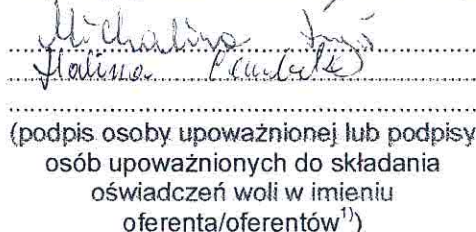 Michalina
Halina
(podpis osoby upoważnionej lub podpisy
osób upoważnionych do składania
oświadczeń woli w imieniu
oferenta/oferentów¹⁾)